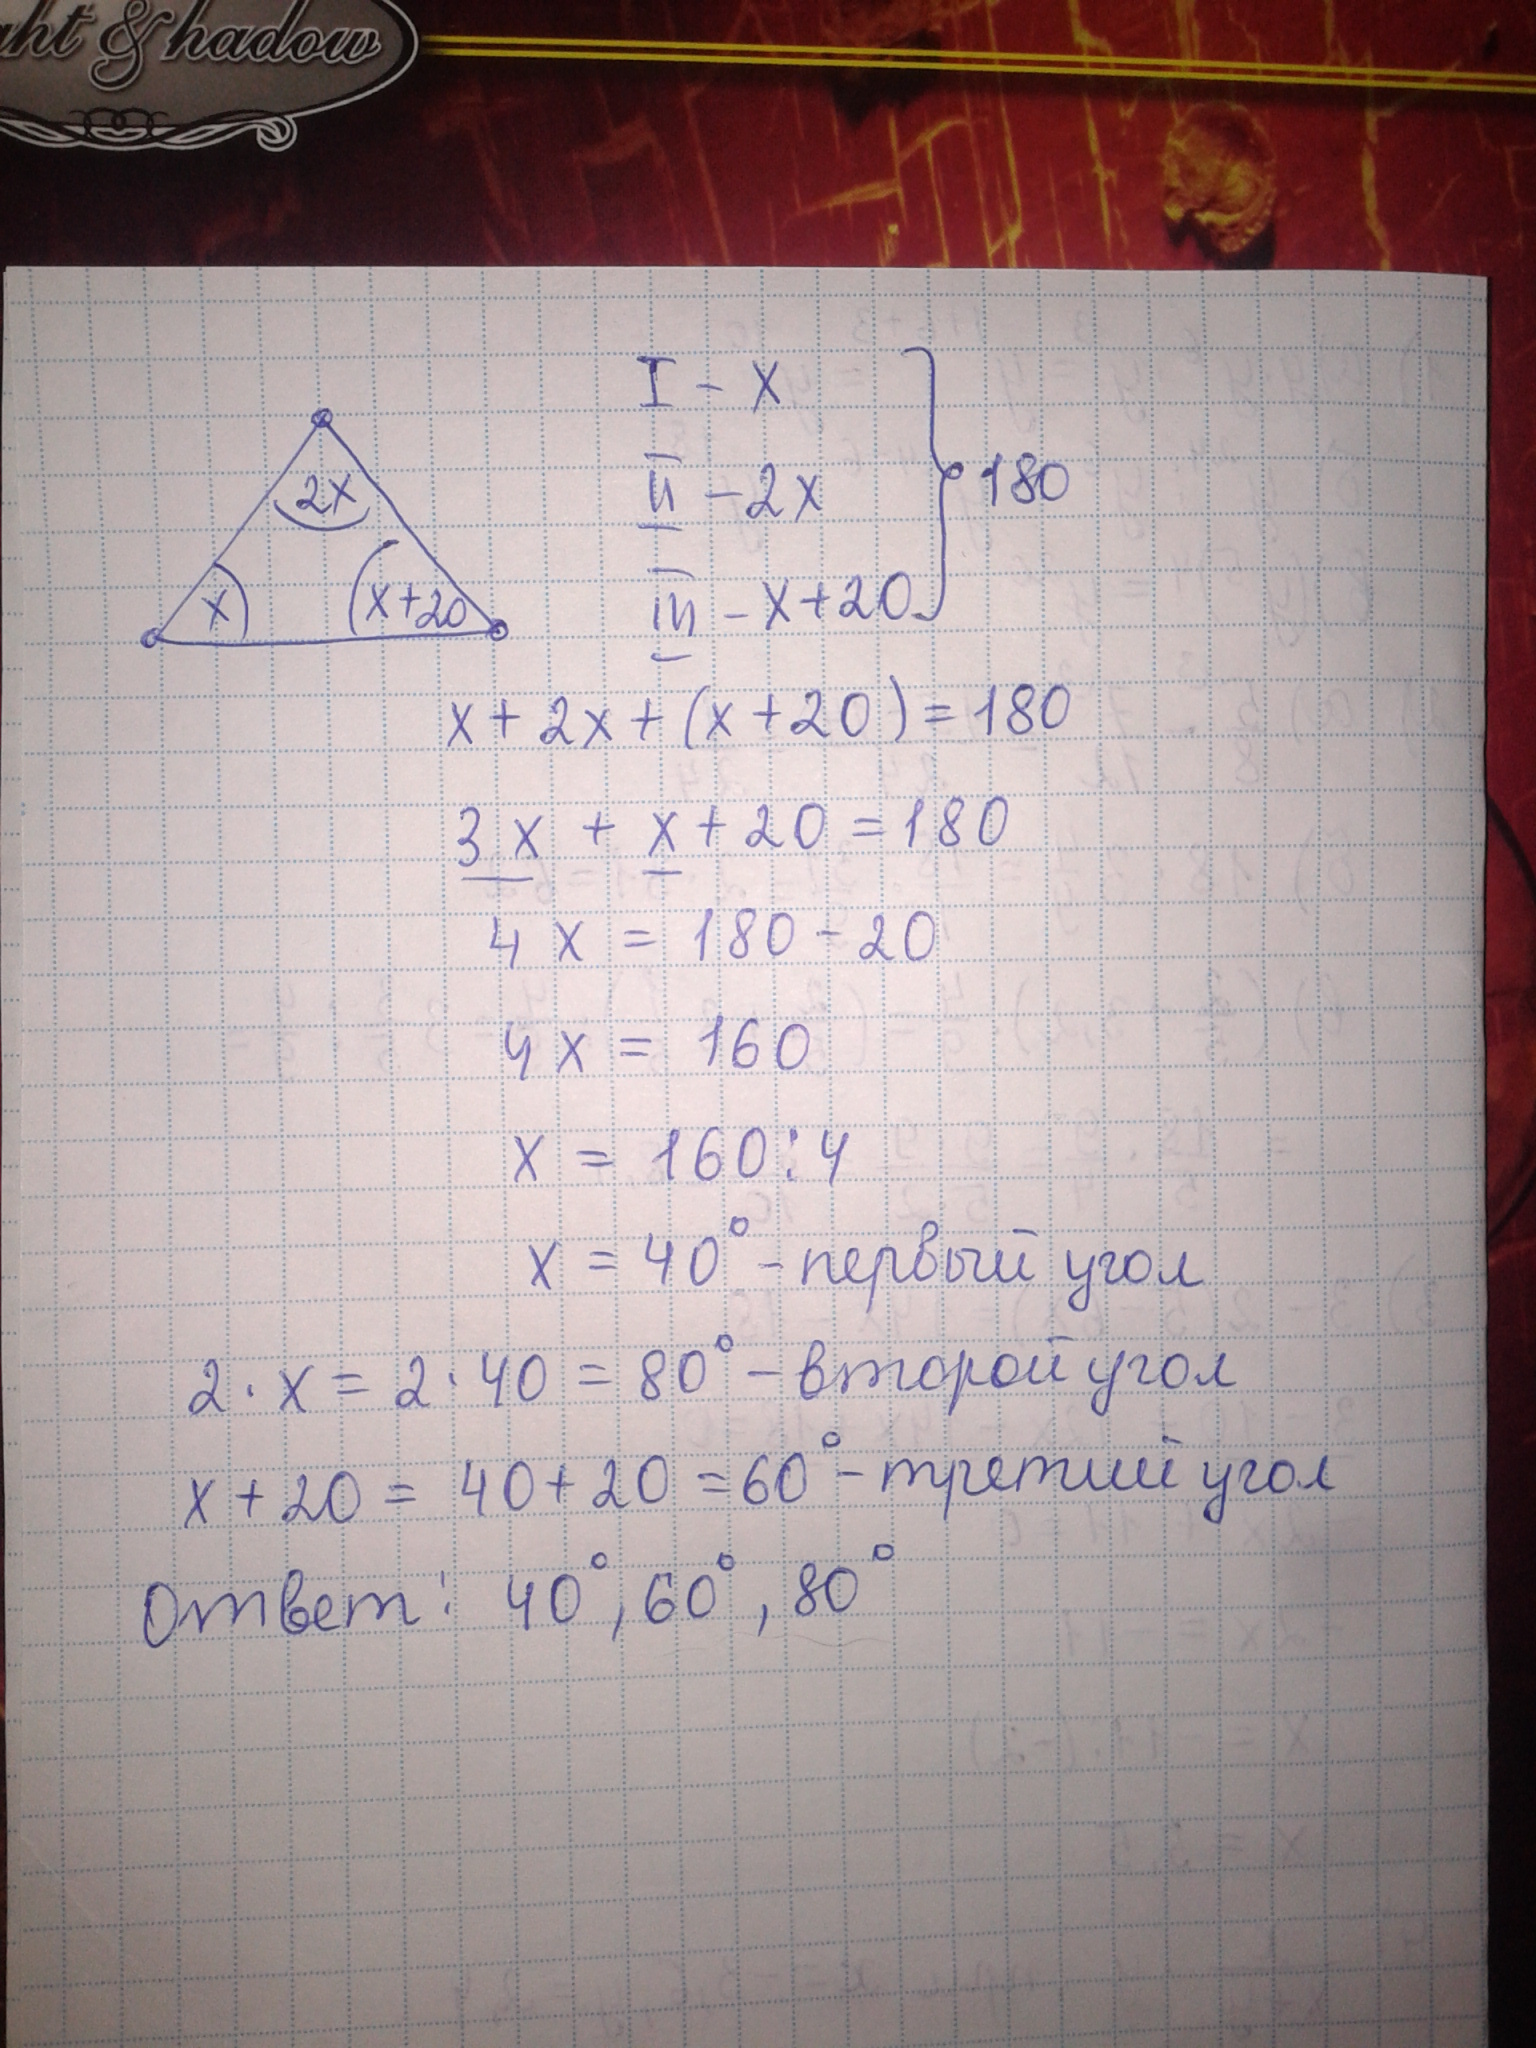 ght & Shadow
I - x
II - 2x
III - x+20
180
2x
x
x+20
x + 2x + (x + 20) = 180
3x + x + 20 = 180
4x = 180 - 20
4x = 160
x = 160 : 4
x = 40° - первый угол
2 · x = 2 · 40 = 80° - второй угол
x + 20 = 40 + 20 = 60° - третий угол
Ответ: 40°, 60°, 80°